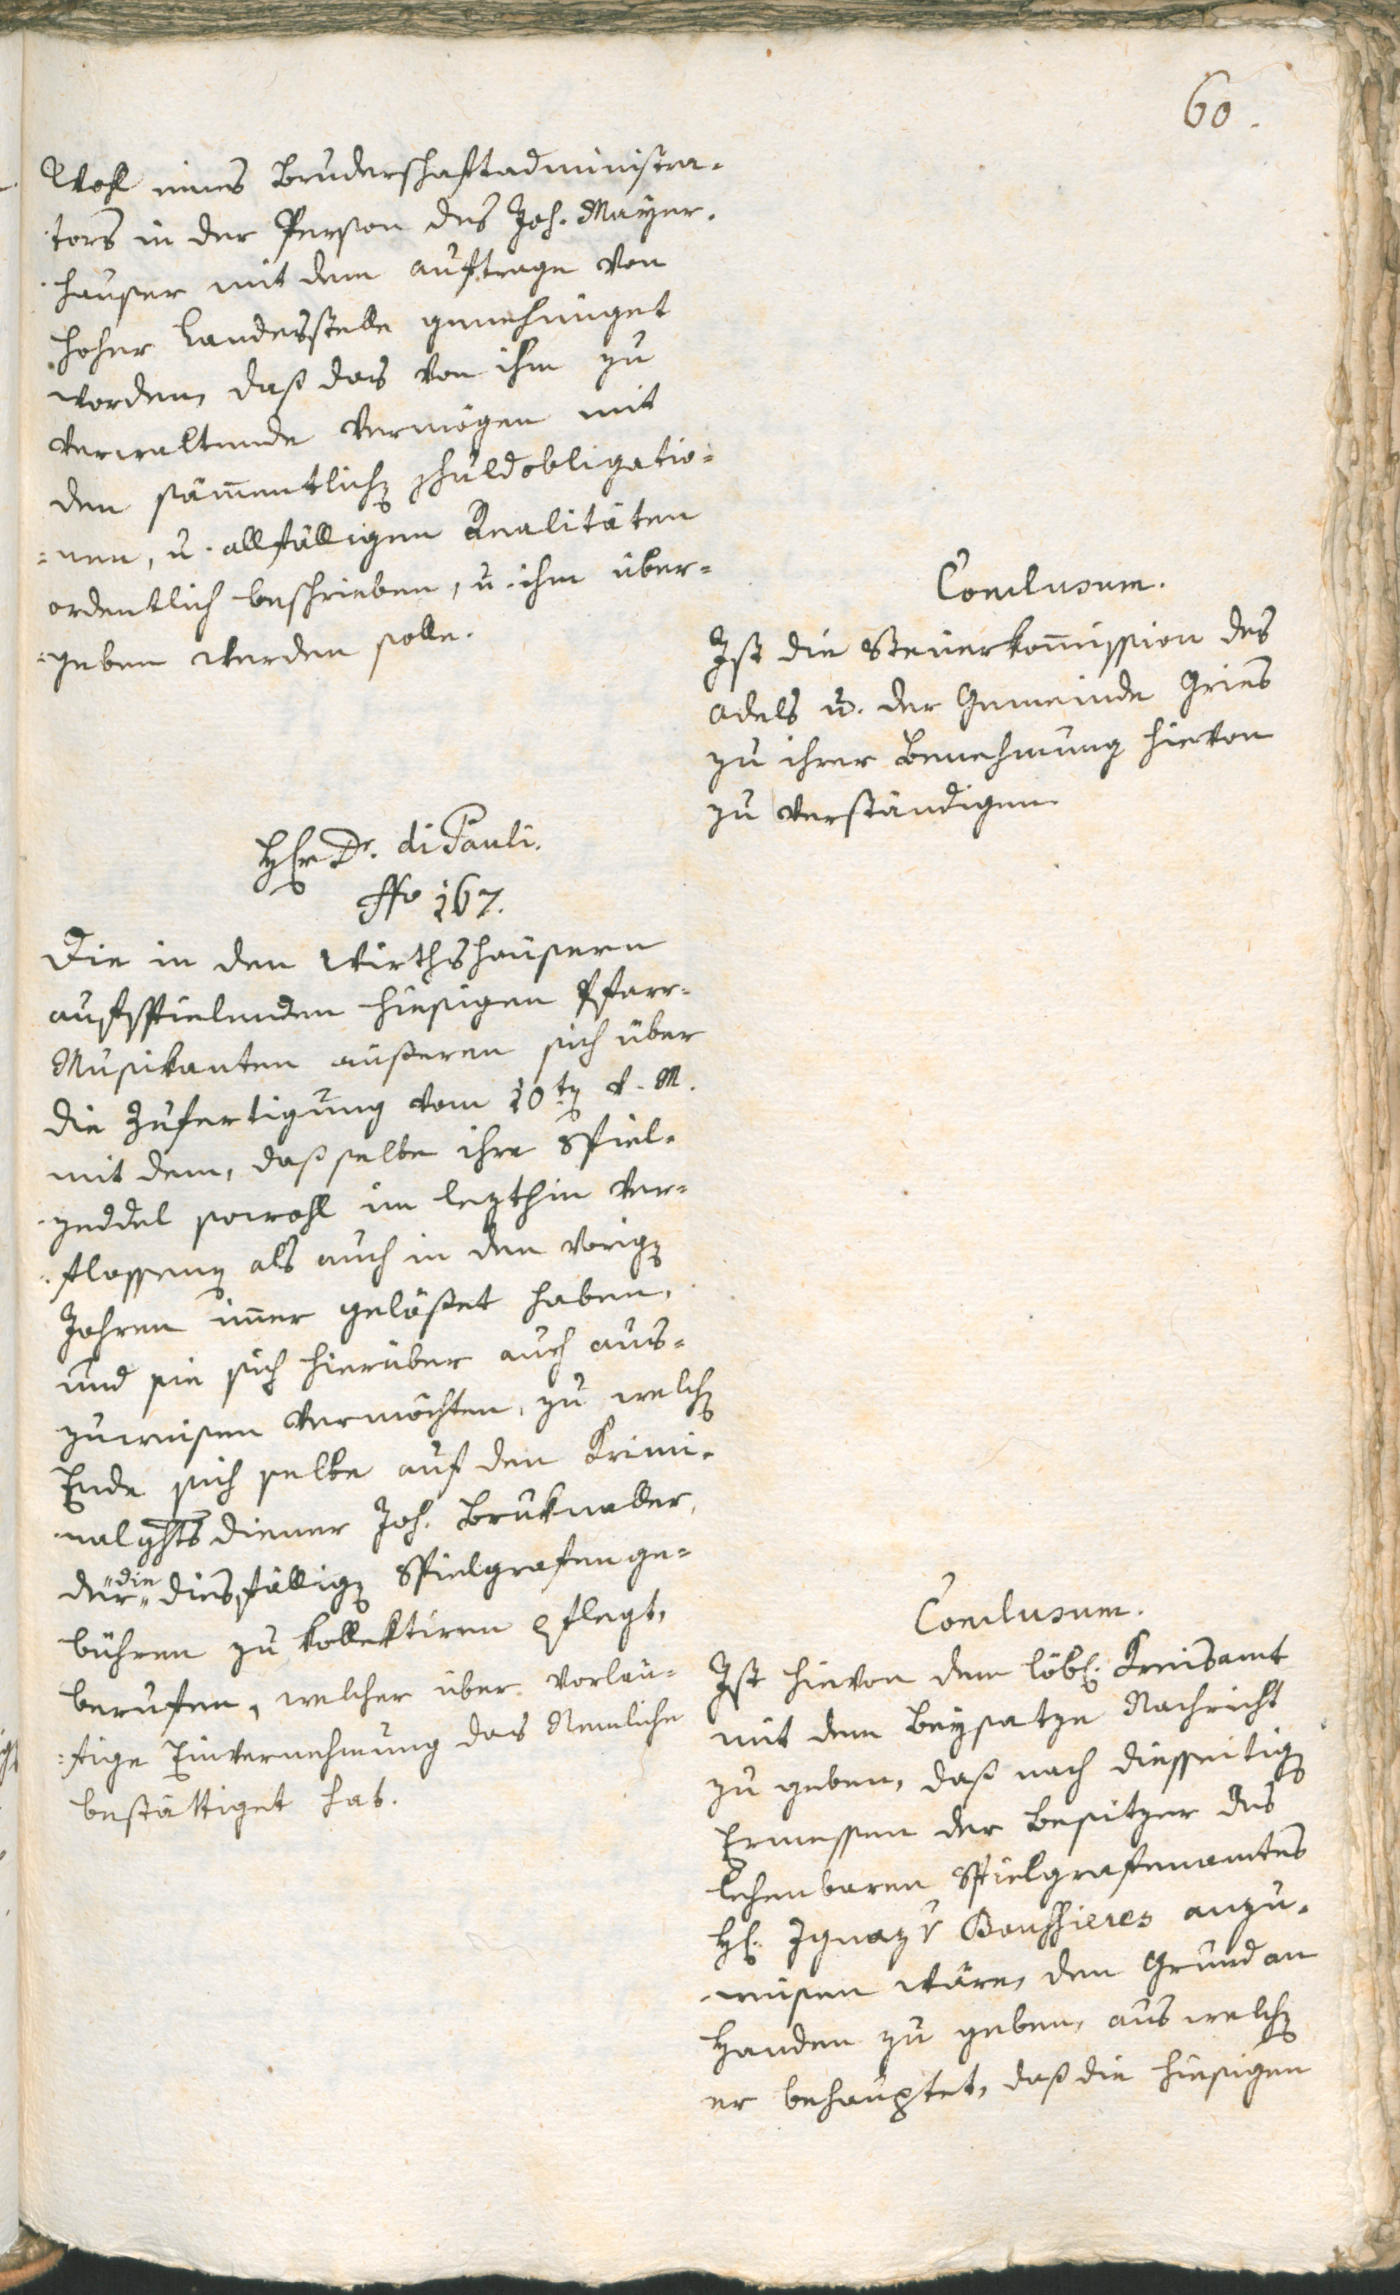 60.
Wahl eines Bruderschaftadministra-
tors in der Person des Joh. Mayr-
hauser mit dem auftrage von
hoher Landesstelle genehmiget
worden, daß das von ihm zu
verwaltende Vermögen mit
den sam̅entlichen Schuldobligatio-
=nen, u. allfälligen Realitäten
ordentlich beschrieben, u. ihm über=
=geben werden solle.
Conclusum.
Ist die Steuerkom̅ission des
Adels u. der Gemeinde Gries
zu ihrer Benehmung hievon
zu verständigen
Hr Dr. di Pauli.
No 167.
Die in den Wirthshäusern
aufspielenden hiesigen Pfarr-
Musikanten äußeren sich über
die Zufertigung vom 10ten v. M.
mit dem, daß selbe ihre Spiel-
zeddel sowohl im lezthin ver-
flossenen als auch in den vorigen
Jahren im̅er gelößet haben,
und sie sich hierüber auch aus-
zuweisen vermöchten, zu welchen
Ende sich selbe auf den Krimi-
nalghtsdiener Joh. Bruknaller,
der die diesfälligen Spielgrafenge=
bühren zu kollektiren pflegt,
berufen, welcher über vorläu=
=fige Einvernehmung das Nemliche
bestättiget hat.
Conclusum.
Ist hievon dem löbl. Kreisamt
mit dem Beysatze Nachricht
zu geben, daß nach diesseitigen
Ermessen der Besitzer des
lehenbaren Spielgrafenamtes
H. Ignaz v Boussieres anzu-
weisen wäre, den Grund an
Handen zu geben, aus welchen
er behauptet, daß die hiesigen